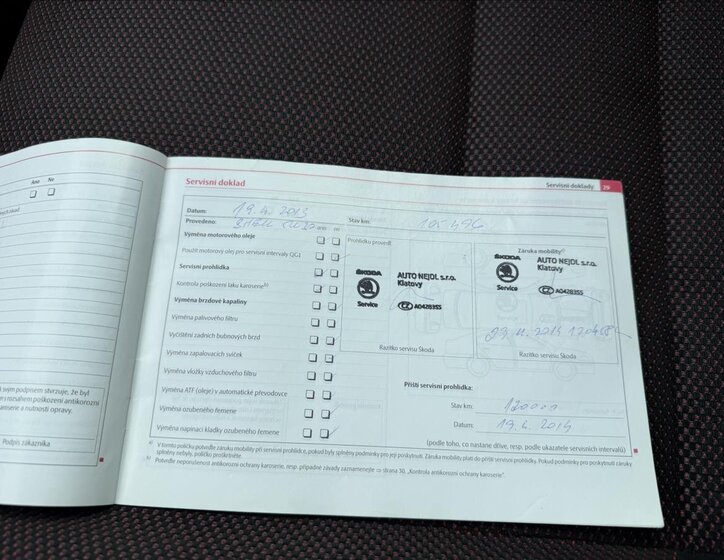 Ano Ne
m svým podpisem stvrzuje, že byl
m rozsahem poškození antikorozní
karoserie a nutností opravy.
Podpis zákazníka
Servisní doklad
Servisní doklady 29
Datum: 19.4.2013
Stav km: 105 496
Provedeno: ano ne
Výměna motorového oleje
Použit motorový olej pro servisní intervaly QG1
Servisní prohlídka
Kontrola poškození laku karoserie b)
Výměna brzdové kapaliny
Výměna palivového filtru
Vyčištění zadních bubnových brzd
Výměna zapalovacích svíček
Výměna vložky vzduchového filtru
Výměna ATF (oleje) v automatické převodovce
Výměna ozubeného řemene
Výměna napínací kladky ozubeného řemene
Prohlídku provedl
ŠKODA
Service
AUTO NEJDL s.r.o.
Klatovy
CZ A0428355
Razítko servisu Škoda
Záruka mobility a)
ŠKODA
Service
AUTO NEJDL s.r.o.
Klatovy
CZ A0428355
Razítko servisu Škoda
Příští servisní prohlídka:
Stav km: 120000
Datum: 19.4.2014
(podle toho, co nastane dříve, resp. podle ukazatele servisních intervalů)
a) V tomto políčku potvrďte záruku mobility při servisní prohlídce, pokud byly splněny podmínky pro její poskytnutí. Záruka mobility platí do příští servisní prohlídky. Pokud podmínky pro poskytnutí záruky
splněny nebyly, políčko proškrtněte.
b) Potvrďte neporušenost antikorozní ochrany karoserie, resp. případné závady zaznamenejte ⇒ strana 30, „Kontrola antikorozní ochrany karoserie".